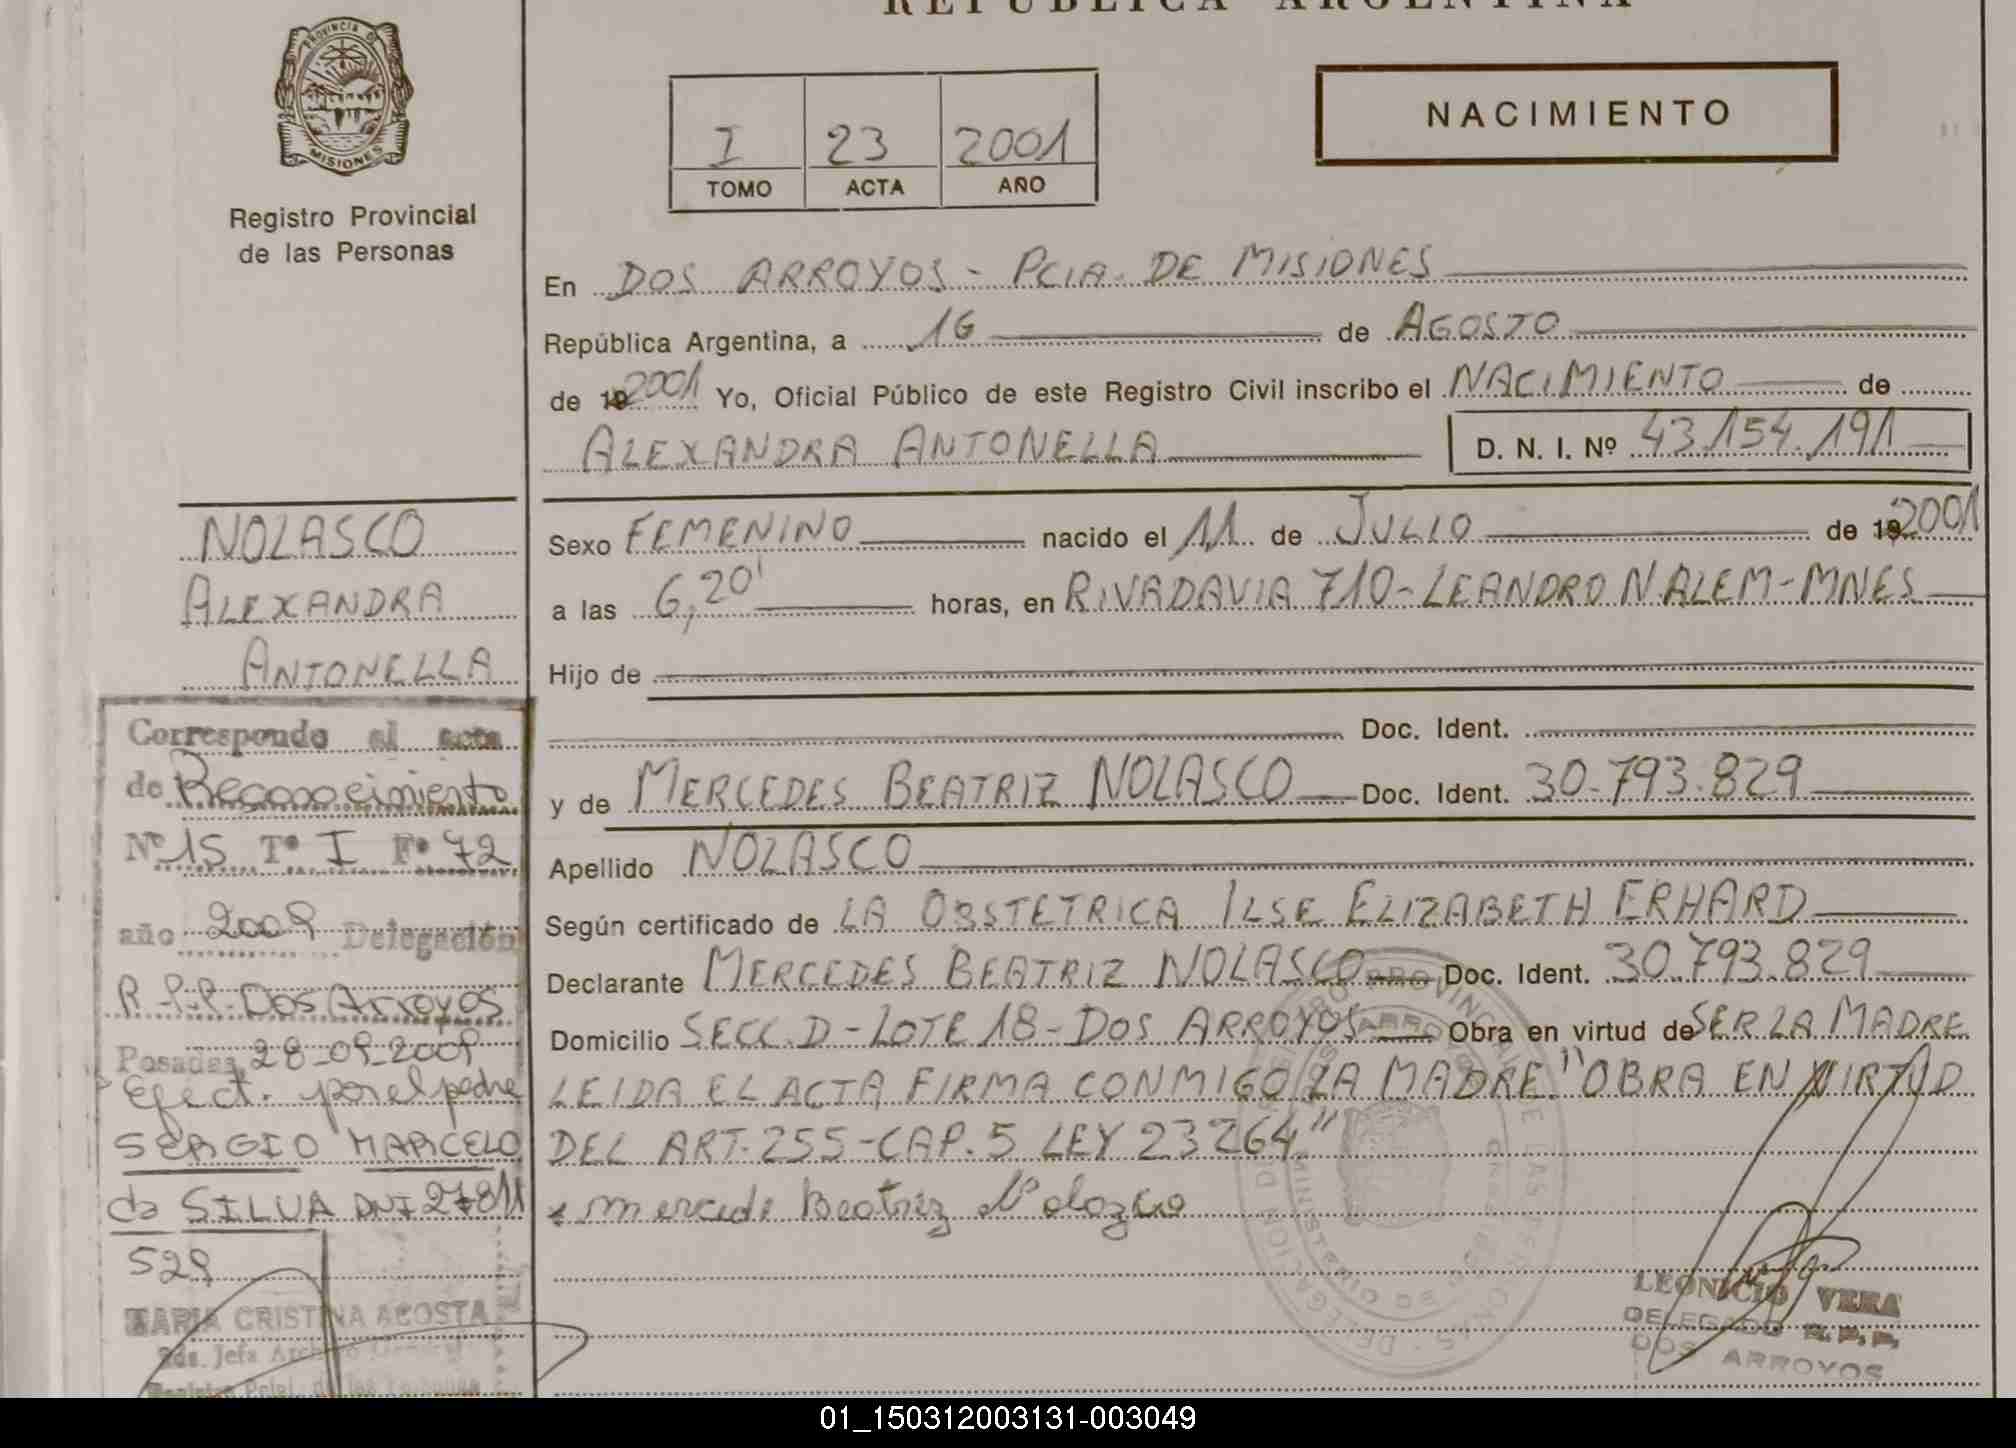 REPUBLICA ARGENTINA
PROVINCIA D
MISIONES
Registro Provincial
de las Personas
I 23 2001
TOMO ACTA AÑO
NACIMIENTO
En DOS ARROYOS - PCIA. DE MISIONES
República Argentina, a 16 de AGOSTO
de 19 2001 Yo, Oficial Público de este Registro Civil inscribo el NACIMIENTO de
ALEXANDRA ANTONELLA
D. N. I. Nº 43.154.191
NOLASCO
ALEXANDRA
ANTONELLA
Sexo FEMENINO nacido el 11 de JULIO de 19 2001
a las 6,20' horas, en RIVADAVIA 710-LEANDRO N.ALEM-MNES
Hijo de
Doc. Ident.
y de MERCEDES BEATRIZ NOLASCO Doc. Ident. 30.793.829
Apellido NOLASCO
Según certificado de LA OBSTETRICA ILSE ELIZABETH ERHARD
Declarante MERCEDES BEATRIZ NOLASCO Doc. Ident. 30.793.829
Domicilio SECC.D-LOTE 18-DOS ARROYOS Obra en virtud de SER LA MADRE
LEIDA EL ACTA FIRMA CONMIGO LA MADRE "OBRA EN VIRTUD
DEL ART.255-CAP.5 LEY 23264"
Beatriz
Corresponde al acta
de Reconocimiento
Nº 15 Tº I Fº 72
año 2009 Delegación
R.P.P. Dos Arroyos
Posadas, 28-09-2009
Efect. por el padre
SERGIO MARCELO
da SILVA DNI 27811
529
MARIA CRISTINA ACOSTA
2da. Jefa Archivo General
LEONICIO VERA
DELEGADO R. P. P.
DOS ARROYOS
01_150312003131-003049